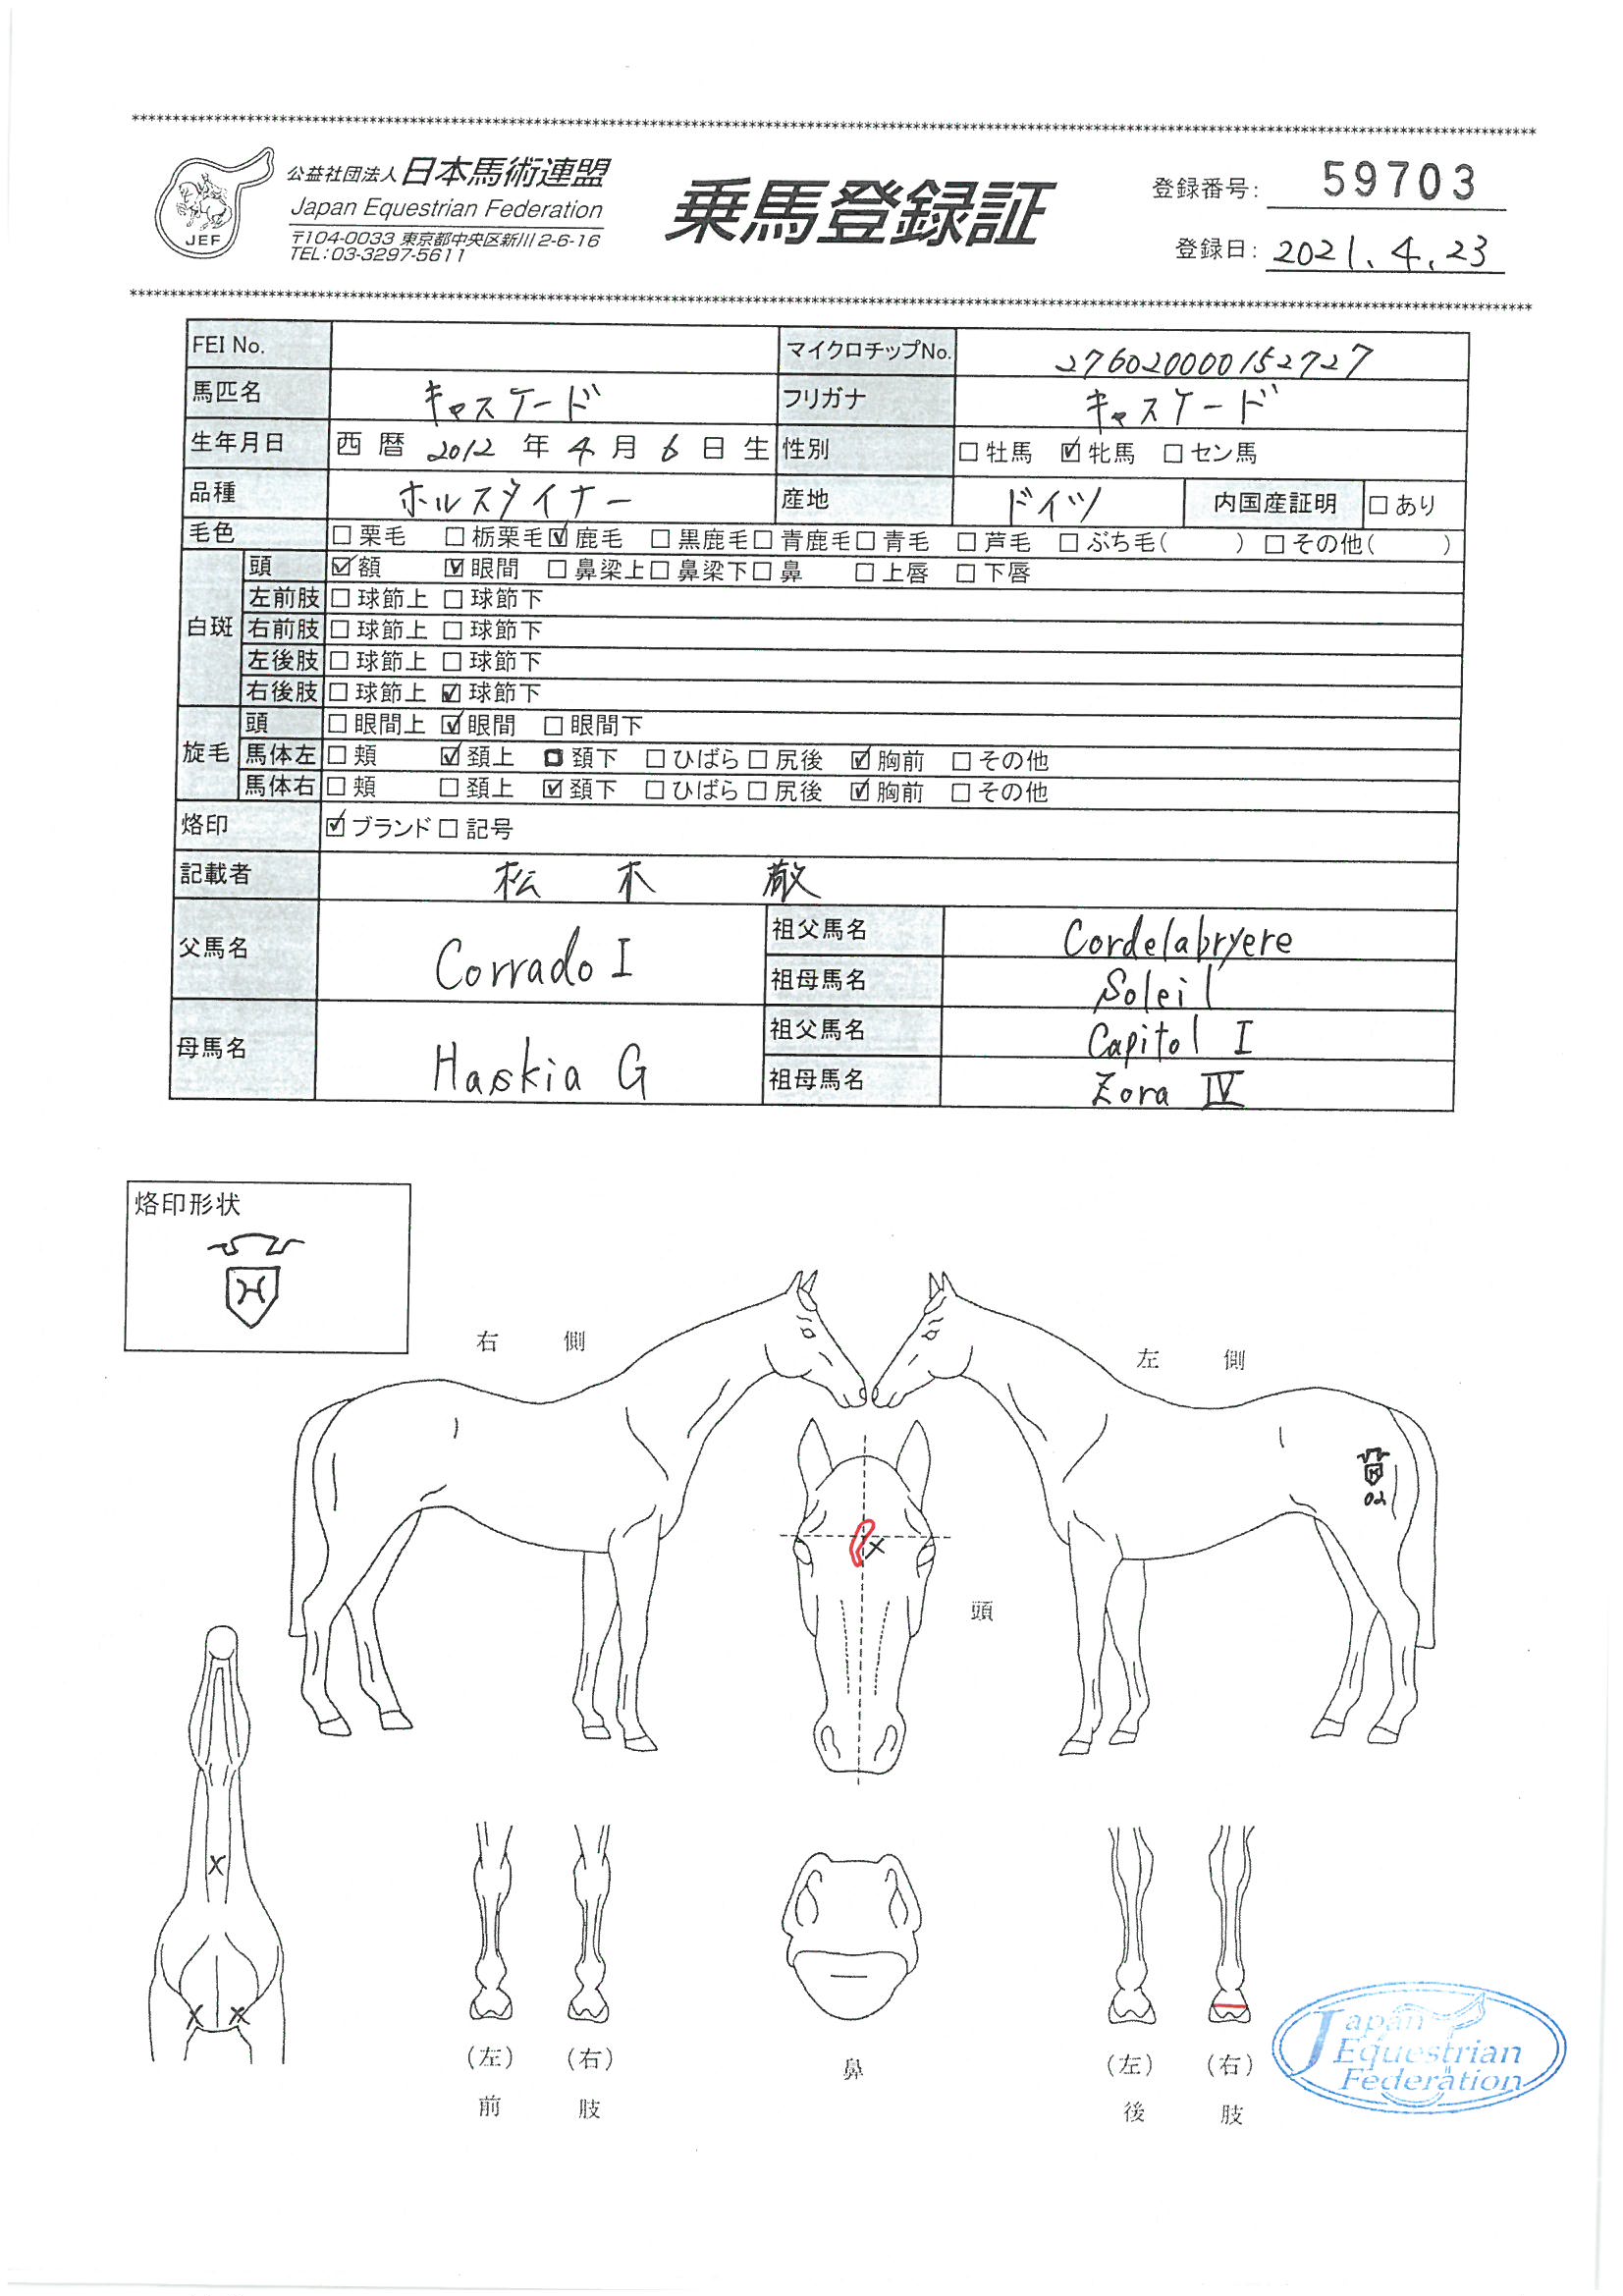 ********************************************************************************
公益社団法人 日本馬術連盟
Japan Equestrian Federation
〒104-0033 東京都中央区新川2-6-16
TEL:03-3297-5611
JEF
乗馬登録証
登録番号: 59703
登録日: 2021.4.23
********************************************************************************
FEI No. マイクロチップNo. 276020000152727
馬匹名 キャスケード フリガナ キャスケード
生年月日 西暦 2012 年 4 月 6 日生 性別 □牡馬 ☑牝馬 □セン馬
品種 ホルスタイナー 産地 ドイツ 内国産証明 □あり
毛色 □栗毛 □栃栗毛 ☑鹿毛 □黒鹿毛 □青鹿毛 □青毛 □芦毛 □ぶち毛( ) □その他( )
白斑 頭 ☑額 ☑眼間 □鼻梁上 □鼻梁下 □鼻 □上唇 □下唇
左前肢 □球節上 □球節下
右前肢 □球節上 □球節下
左後肢 □球節上 □球節下
右後肢 □球節上 ☑球節下
旋毛 頭 □眼間上 ☑眼間 □眼間下
馬体左 □頬 ☑頚上 □頚下 □ひばら □尻後 ☑胸前 □その他
馬体右 □頬 □頚上 ☑頚下 □ひばら □尻後 ☑胸前 □その他
烙印 ☑ブランド □記号
記載者 松木 敬
父馬名 Corrado I 祖父馬名 Cordelabryere
祖母馬名 Soleil
母馬名 Haskia G 祖父馬名 Capitol I
祖母馬名 Zora IV
烙印形状
H
右側
左側
02
頭
(左) (右)
前肢
鼻
(左) (右)
後肢
Japan
Equestrian
Federation